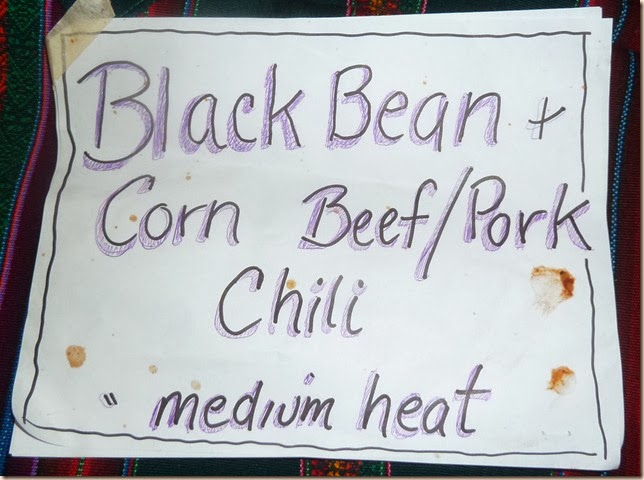 Black Bean +
Corn Beef/Pork
Chili
" medium heat